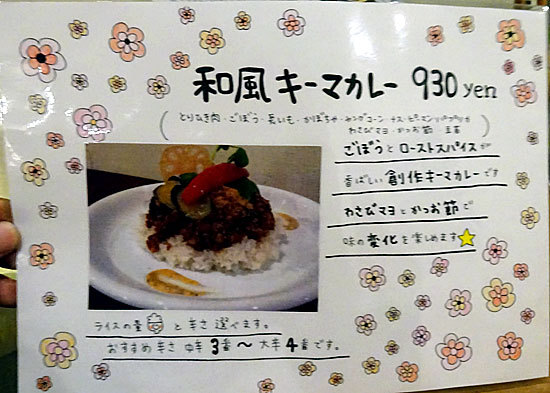 和風キーマカレー 930yen
(とりひき肉・ごぼう・長いも・かぼちゃ・ヤングコーン・ナス・ピーマン・パプリカ
わさびマヨ・かつお節・
ごぼうとローストスパイスが
香ばしい創作キーマカレーです
わさびマヨとかつお節で
味の変化を楽しめます
ライスの量と辛さ選べます。
おすすめ辛さ中辛3番〜大辛4番です。